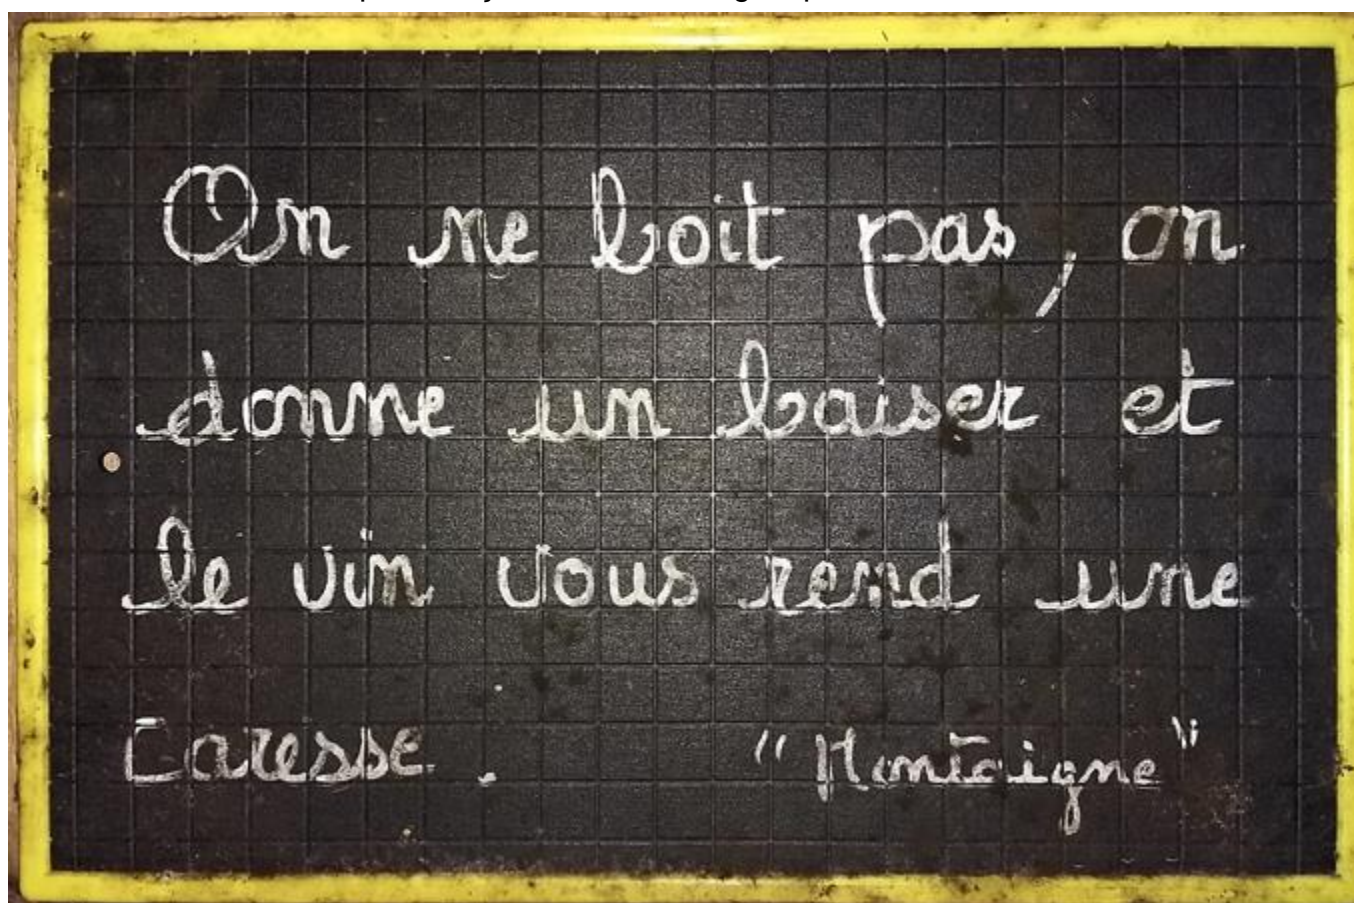 On ne boit pas, on
donne un baiser et
le vin vous rend une
caresse. "Montaigne"